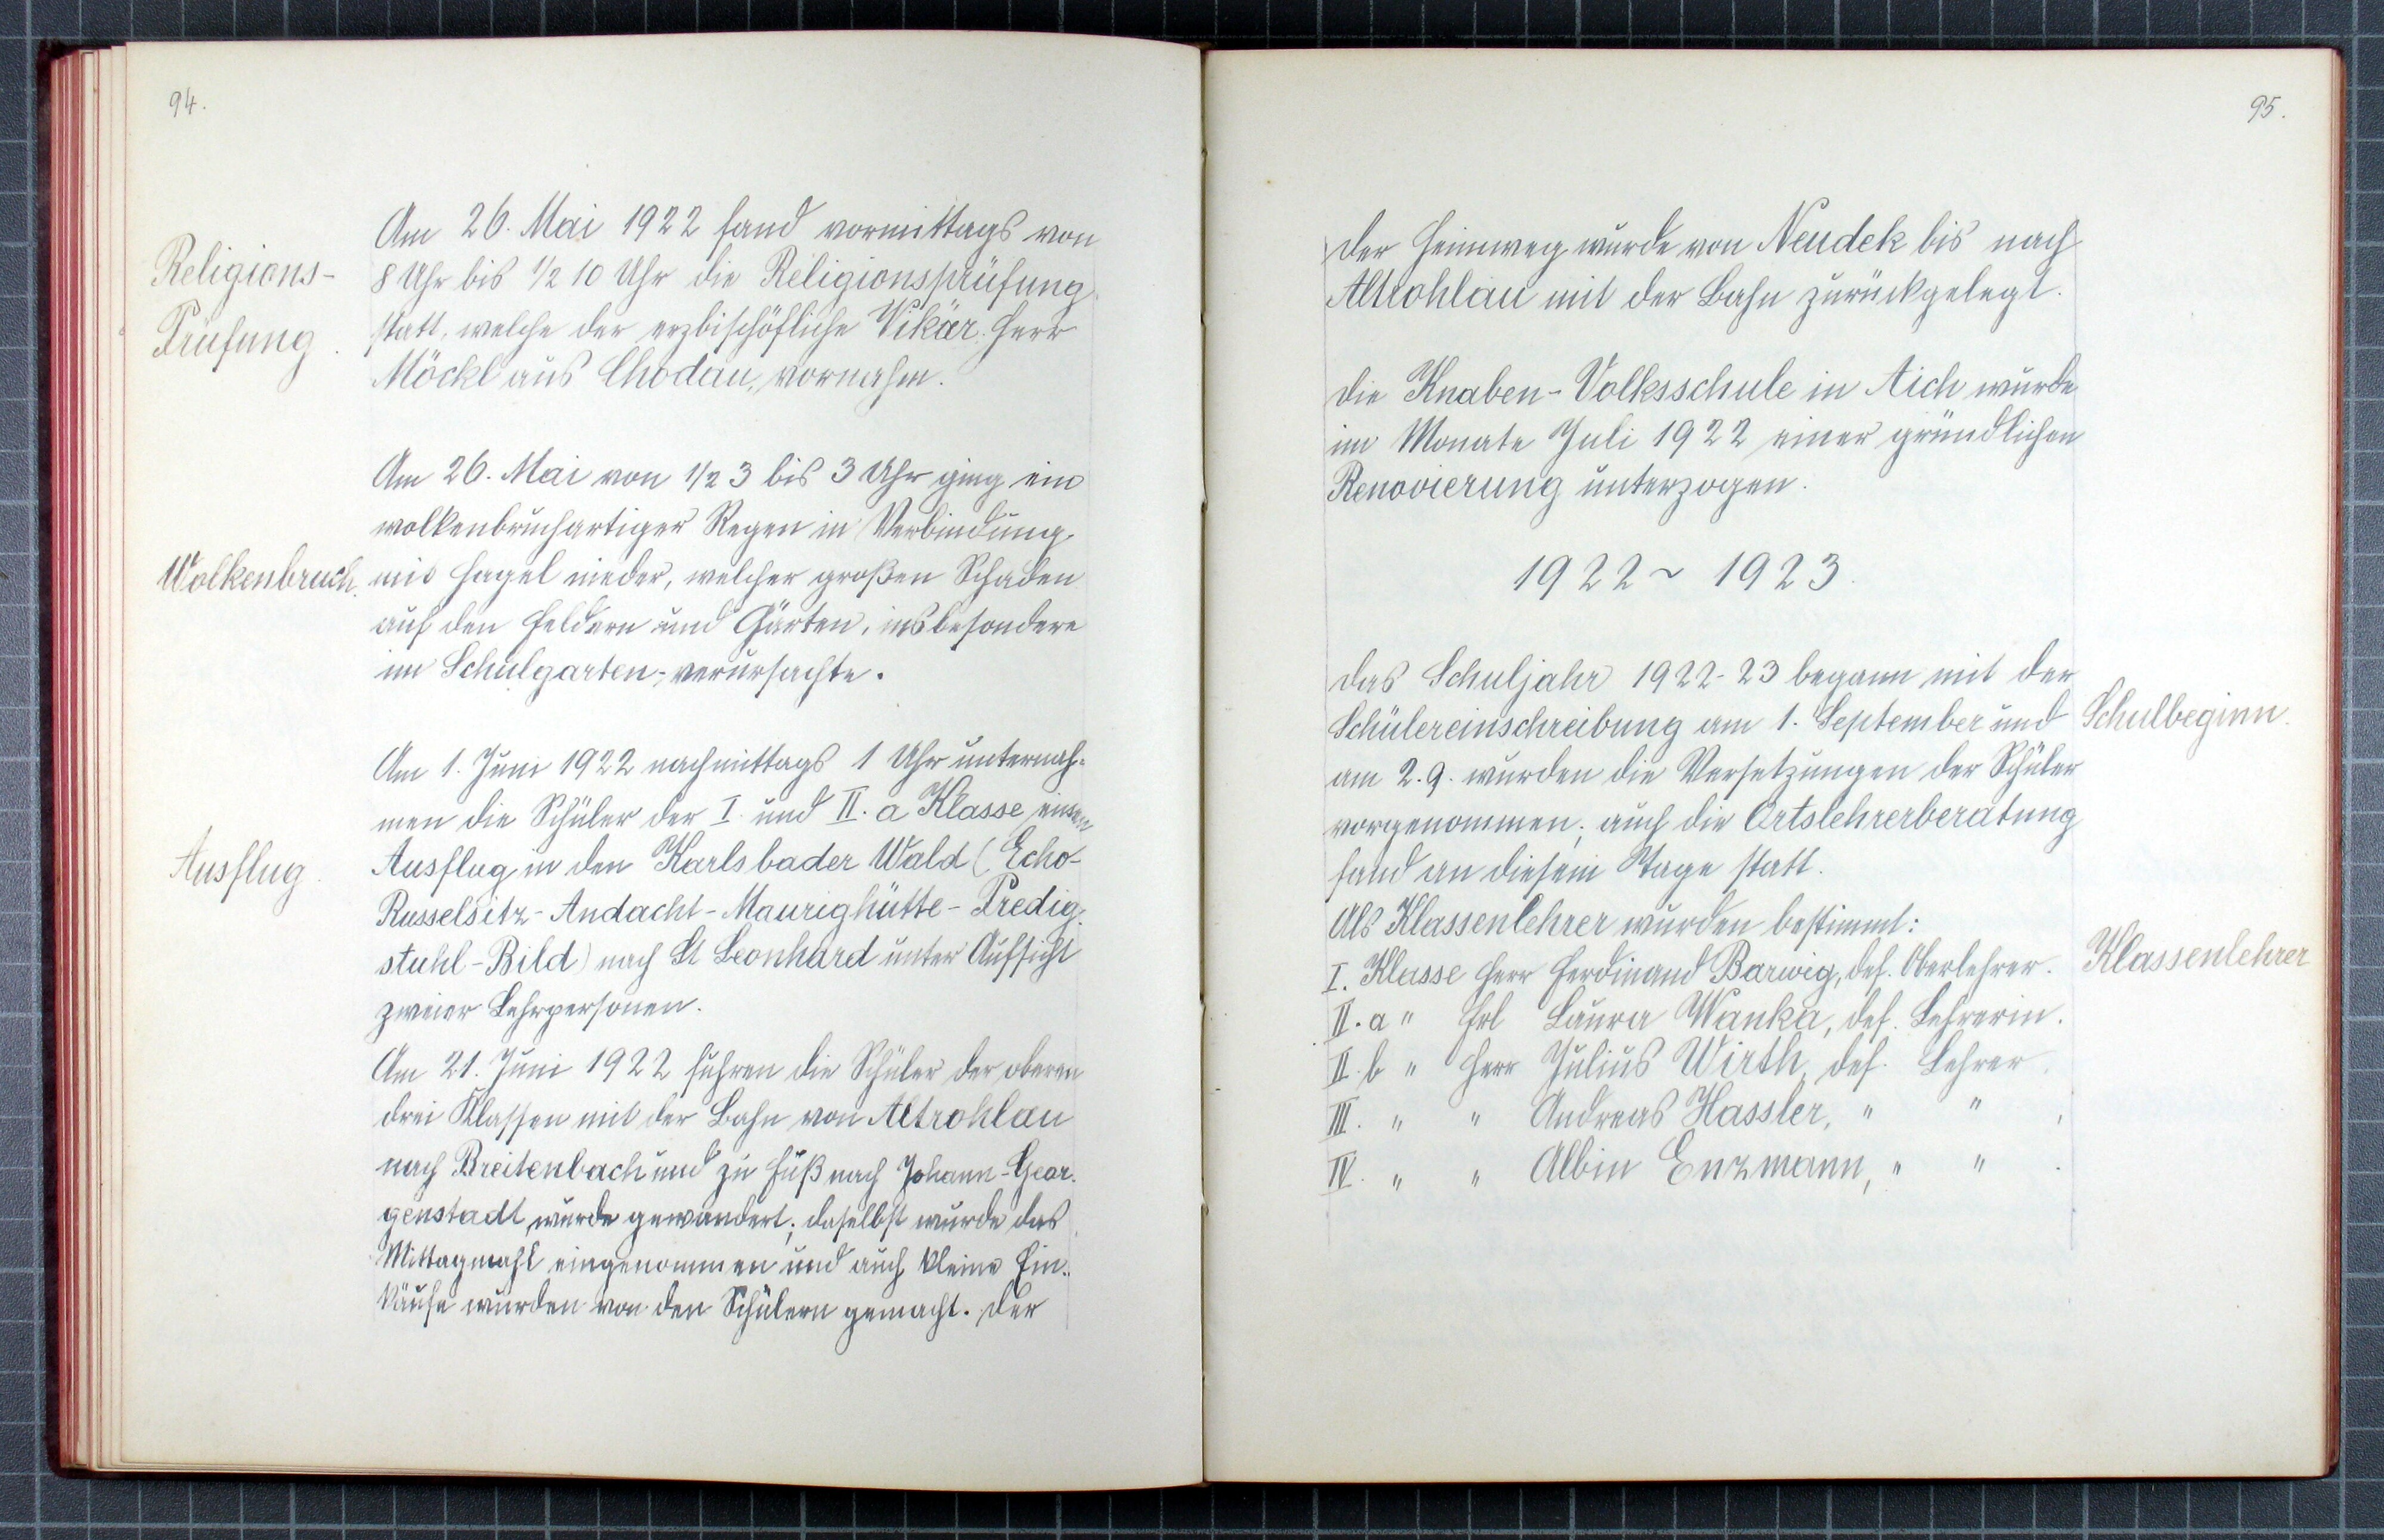 94.
Religions-
Prüfung.
Am 26. Mai 1922 fand vormittags von
8 Uhr bis 1/2 10 Uhr die Religionsprüfung
statt, welche der erzbischöfliche Vikär. Herr
Möckl aus Chodau, vornahm.
Am 26. Mai von 1/2 3 bis 3 Uhr ging ein
wolkenbruchartiger Regen in Verbindung
Wolkenbruch.
mit Hagel nieder, welcher großen Schaden
auf den Feldern und Gärten, insbesondere
im Schulgarten, verursachte.
Am 1. Juni 1922 nachmittags 1 Uhr unternah-
men die Schüler der I. und II. a Klasse einen
Ausflug.
Ausflug in den Karlsbader Wald (Echo-
Russelsitz-Andacht-Maurighütte-Predig-
stuhl-Bild) nach St Leonhard unter Aufsicht
zweier Lehrpersonen.
Am 21. Juni 1922 fuhren die Schüler der oberen
drei Klassen mit der Bahn von Altrohlau
nach Breitenbach und zu Fuß nach Johann-Geor-
genstadt wurde gewandert; daselbst wurde das
Mittagmahl eingenommen und auch kleine Ein-
käufe wurden von den Schülern gemacht. Der
95.
Der Heimweg wurde von Neudek bis nach
Altrohlau mit der Bahn zurückgelegt.
Die Knaben-Volksschule in Aich wurde
im Monate Juli 1922 einer gründlichen
Renovierung unterzogen.
1922 ~ 1923.
Das Schuljahr 1922-23 begann mit der
Schülereinschreibung am 1. September und
Schulbeginn.
am 2.9. wurden die Versetzungen der Schüler
vorgenommen; auch die Ortslehrerberatung
fand an diesem Tage statt.
Als Klassenlehrer wurden bestimmt:
I. Klasse Herr Ferdinand Barwig, def. Oberlehrer.
Klassenlehrer
II. a " Frl Laura Wanka, def. Lehrerin.
II. b " Herr Julius Wirth, def. Lehrer.
III. " " Andreas Hassler, " " .
IV. " " Albin Enzmann, " " .